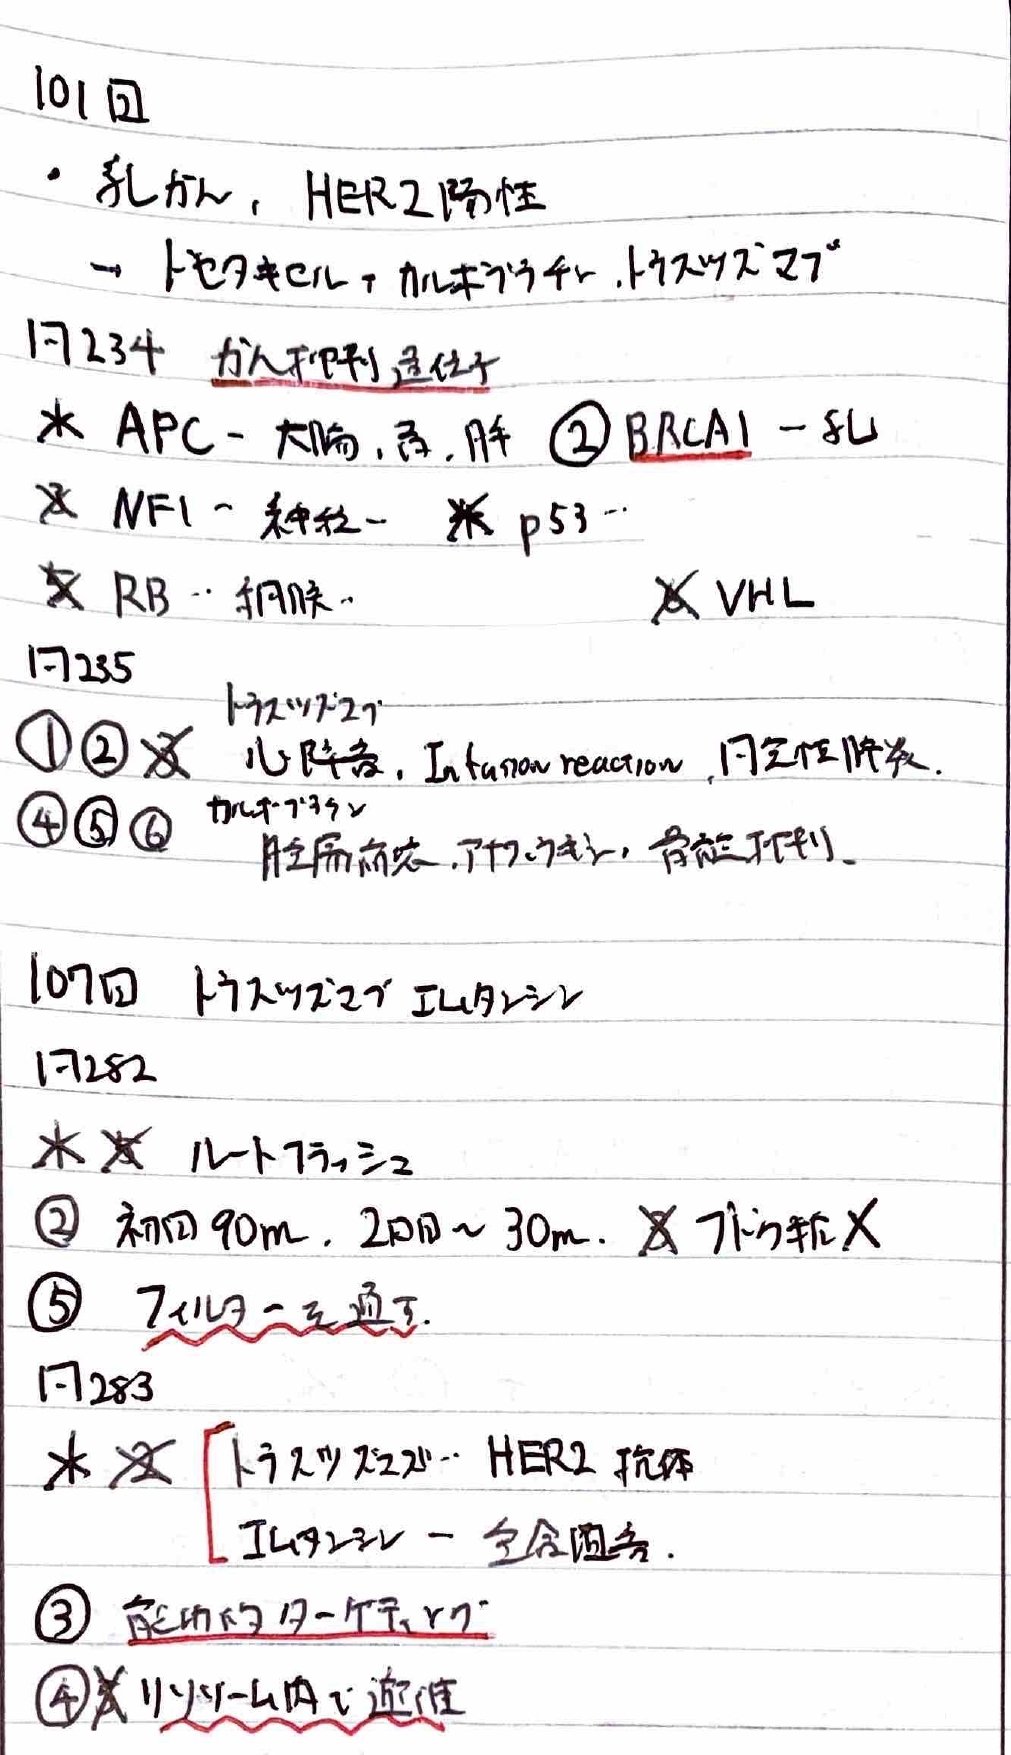 101回
・乳がん, HER2陽性
→ ドセタキセル、カルボプラチン、トラスツズマブ
問234 がん抑制遺伝子
※ APC - 大腸、胃、膵 ② BRCA1 - 乳
※ NF1 - 神経- ※ p53 ‥
※ RB ‥ 網膜‥ ※ VHL
問235
トラスツズマブ
①②※ 心障害, Infusion reaction, 間室性肺炎.
カルボプラチン
④⑤⑥ アナフィラキシー, 骨髄抑制
107回 トラスツズマブ エムタンシン
問282
※ ※ ルートフラッシュ
② 初回90m. 2回目~30m. ※ ブドウ糖X
⑤ フィルターを通す.
問283
※ ※ トラスツズマブ‥ HER2 抗体
エムタンシン -
③ 能動的ターゲティング
④※ リソソーム内で遊離